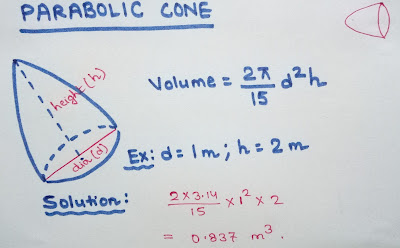 PARABOLIC CONE
height (h)
dia (d)
Volume = 2π/15 d²h
Ex: d = 1m ; h = 2 m
Solution: 2×3.14/15 ×1²×2
= 0.837 m³.